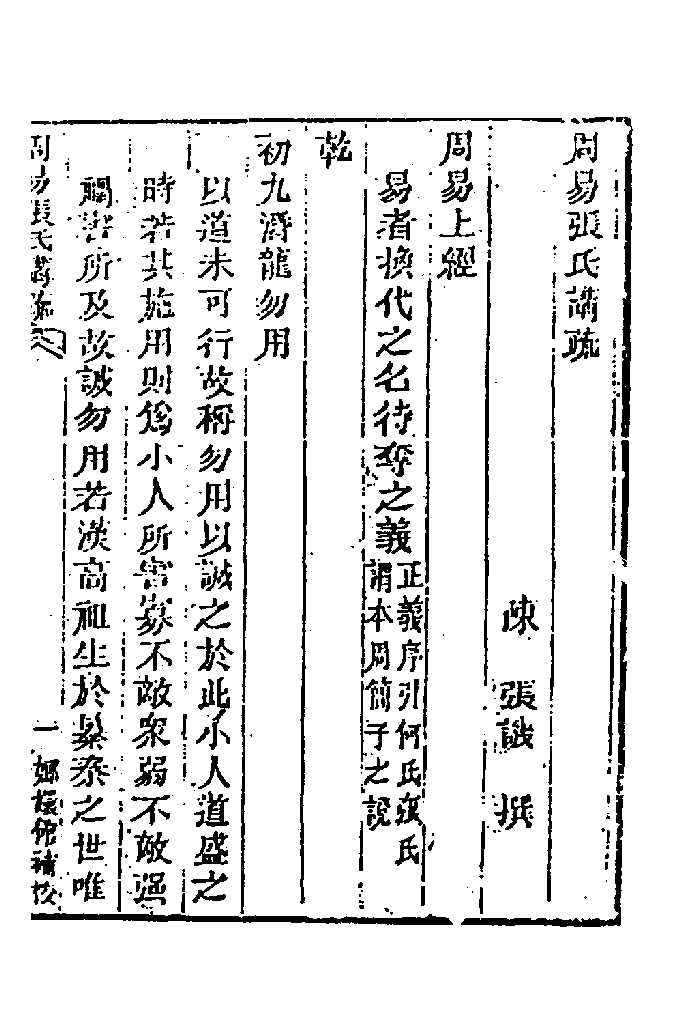 周易張氏講疏
陳　張譏　撰
周易上經
易者換代之名待奪之義正義序引何氏張氏
謂本周簡子之說
乾
初九潛龍勿用
以道未可行故稱勿用以誡之於此小人道盛之
時若其施用則為小人所害寡不敵衆弱不敵强
禍害所及故誡勿用若漢高祖生於暴秦之世唯
周易張氏講疏
一　嫏嬛館補校